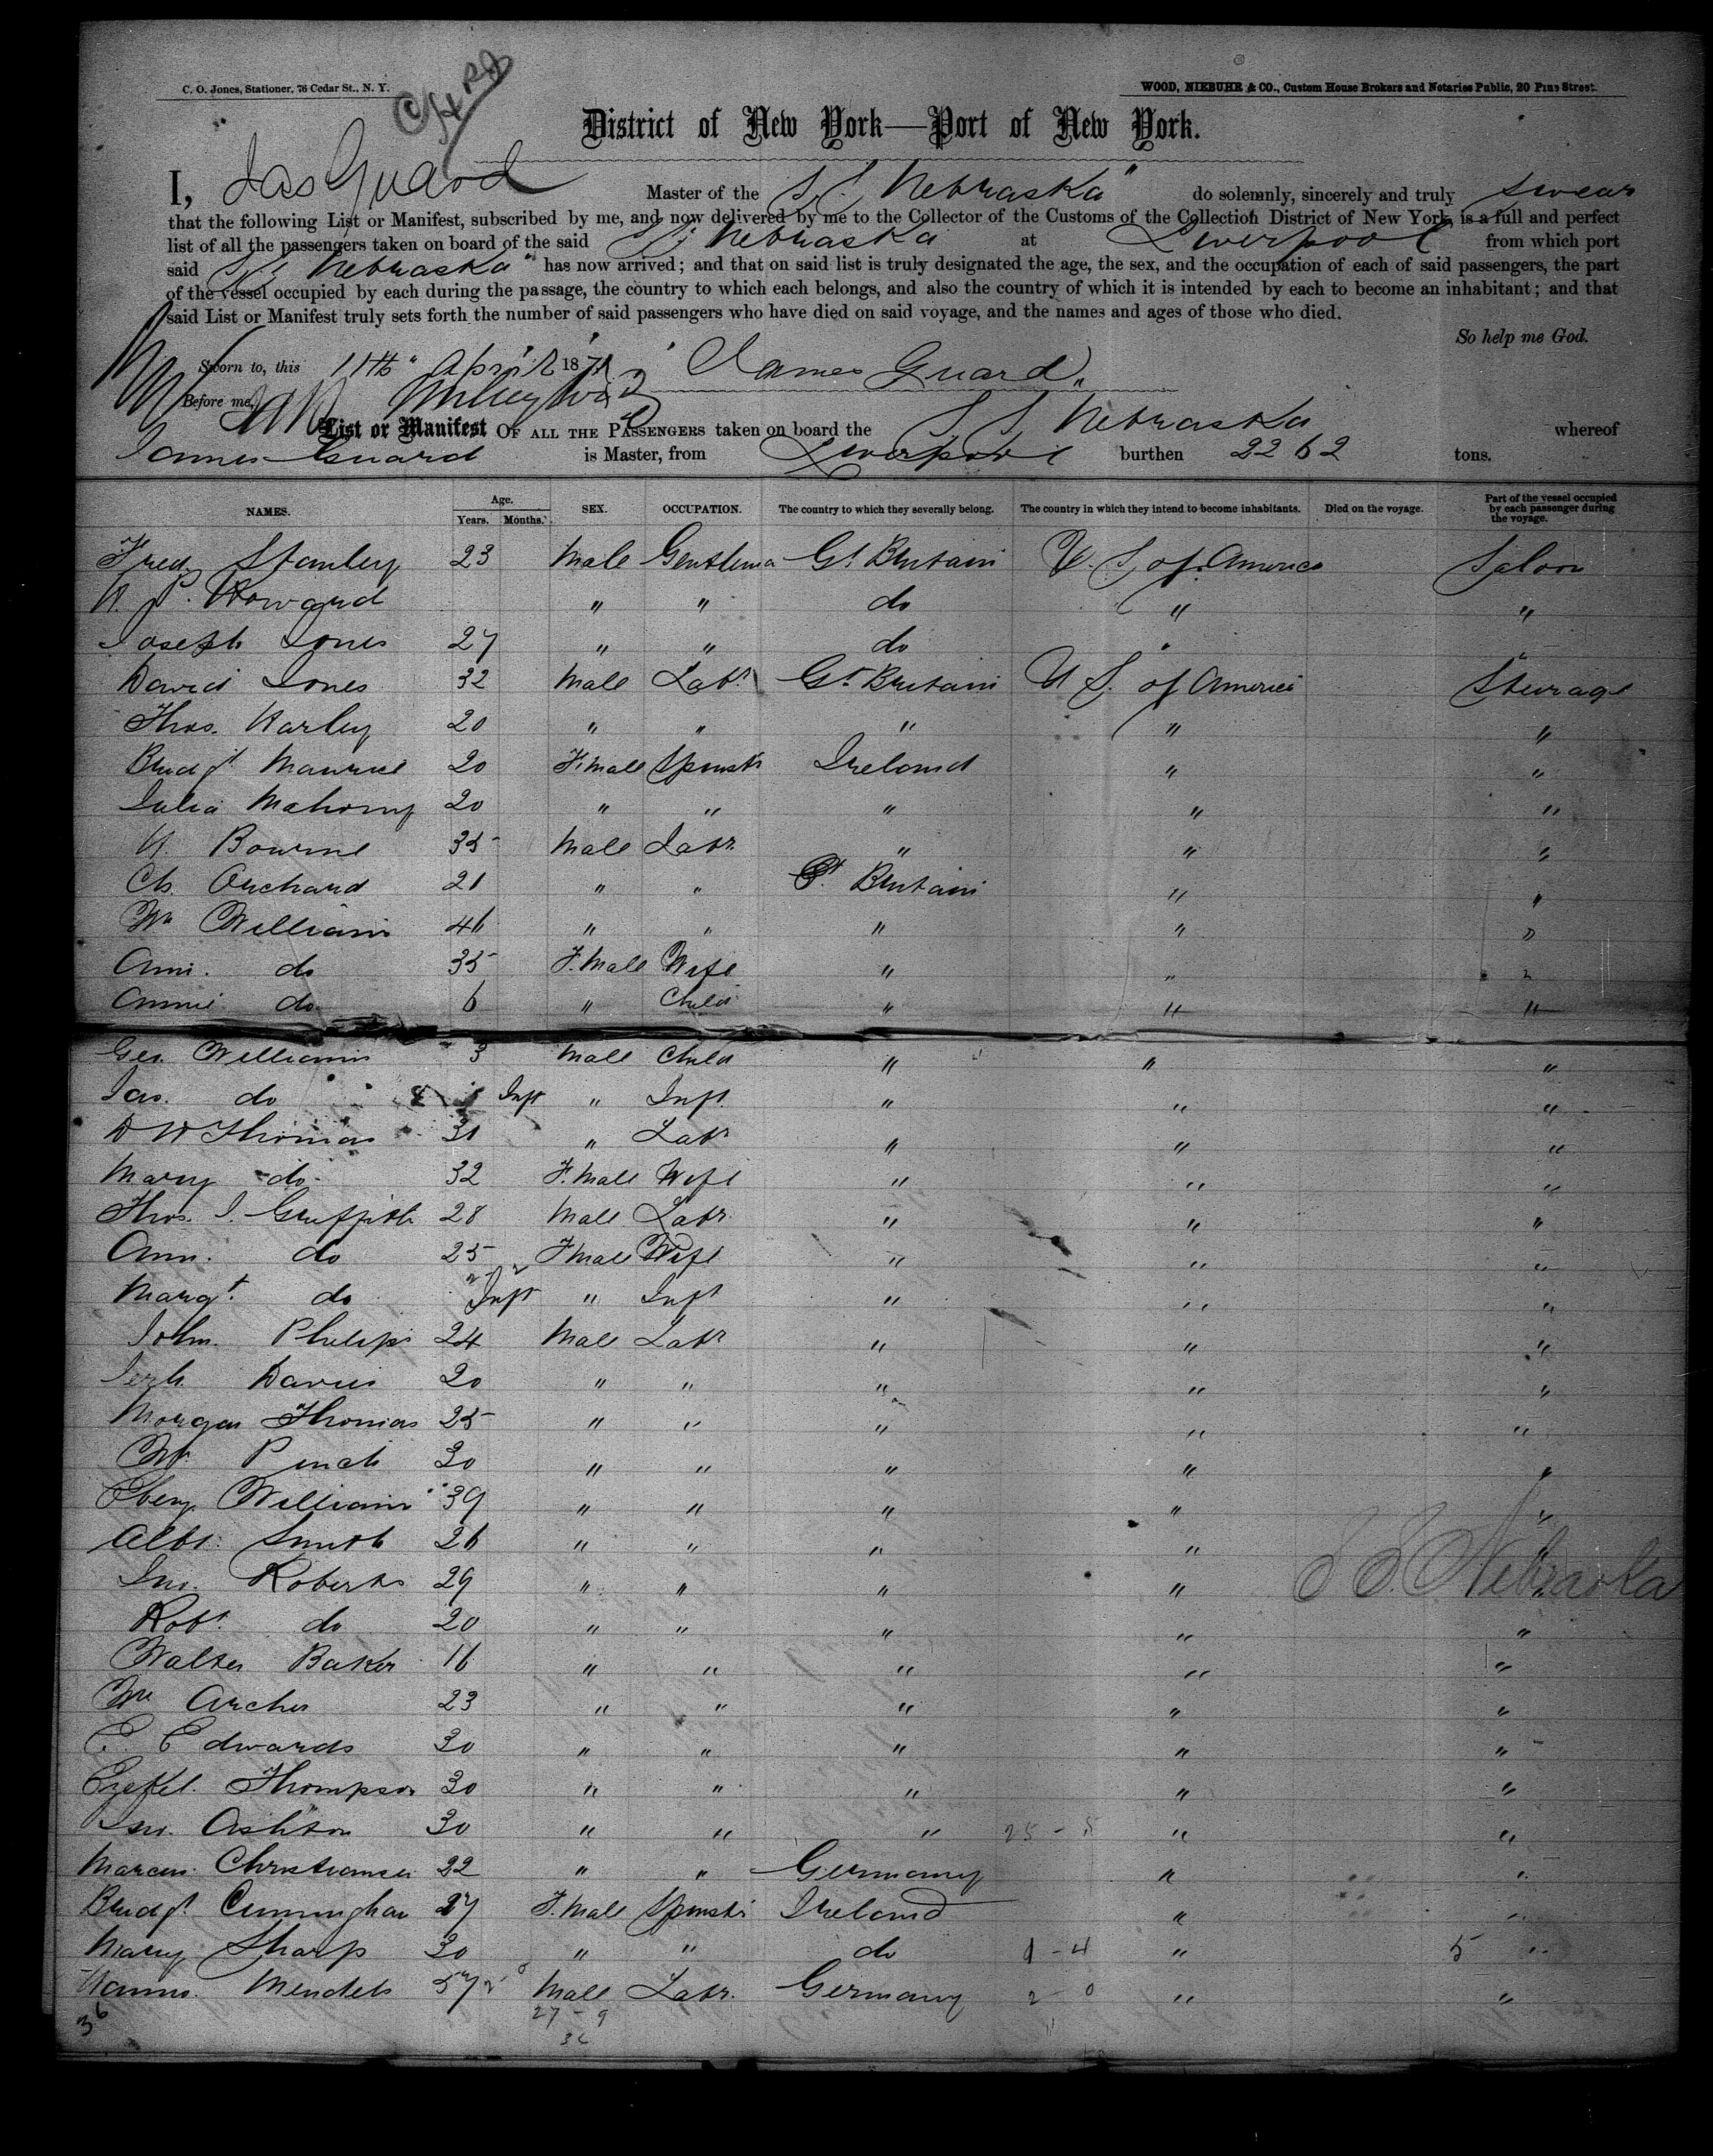 C. O. Jones, Stationer, 76 Cedar St., N. Y.
WOOD, NIEBUHR & CO., Custom House Brokers and Notaries Public, 20 Pine Street.
District of New York—Port of New York.
I, Jas Guard Master of the S.S. Nebraska" do solemnly, sincerely and truly swear
that the following List or Manifest, subscribed by me, and now delivered by me to the Collector of the Customs of the Collection District of New York, is a full and perfect
list of all the passengers taken on board of the said S.S. Nebraska at Liverpool from which port
said S.S. Nebraska" has now arrived; and that on said list is truly designated the age, the sex, and the occupation of each of said passengers, the part
of the vessel occupied by each during the passage, the country to which each belongs, and also the country of which it is intended by each to become an inhabitant; and that
said List or Manifest truly sets forth the number of said passengers who have died on said voyage, and the names and ages of those who died.
So help me God.
Sworn to, this 11th " April 187 James Guard
Before me,
List or Manifest OF ALL THE PASSENGERS taken on board the S.S. Nebraska whereof
James Guard is Master, from Liverpool burthen 2262 tons.
NAMES. Age. Years. Months. SEX. OCCUPATION. The country to which they severally belong. The country in which they intend to become inhabitants. Died on the voyage. Part of the vessel occupied by each passenger during the voyage.
Fred Stanley 23 Male Gentlema Gt. Britain U. S. of America Saloon
H. P. Howard " " do " "
Joseph Jones 27 " " do " "
David Jones 32 Male Labr Gt Britain U S. of America Steerage
Thos. Harley 20 " " " " "
Bridgt Maurice 20 F.male Spinstr Ireland " "
Julia Mahony 20 " " " " "
H. Bourne 35 Male Labr. " " "
Ch. Orchard 21 " " Gt. Britain " "
Wm Williams 46 " " " " "
Ann. do 35 F.Male Wife " " "
Annie do 6 " Child " " "
Geo. Williams 3 Male Child " " "
Jas. do Inft " Inft. " " "
D W Thomas 31 " Labr " " "
Mary do. 32 F.Male Wife " " "
Thos. J. Griffith 28 Male Labr. " " "
Ann. do 25 Fmale Wife " " "
Margt. do Inft " Inft " " "
John. Philips 24 Male Labr " " "
Davies 20 " " " " "
Morgan Thomas 25 " " " " "
Wm Pinch 30 " " " " "
Williams 39 " " " " "
Albt. Smith 26 " " " " "
Jno. Roberts 29 " " " " "
S S. Nebraska
Robt. do 20 " " " " "
Walter Baker 16 " " " " "
Wm Archer 23 " " " " "
E. Edwards 30 " " " " "
Ezekel. Thompson 30 " " " " "
Jno. Ashton 30 " " " " "
Marcus Christiansen 22 " " Germany " "
Bridgt. Cunningham 27 F.Male Spinstr Ireland " "
Mary Sharp 30 " " do 1-4 " 5 "
Hanno. Mendels 57 Male Labr. Germany 2 0 " "
36
27-9